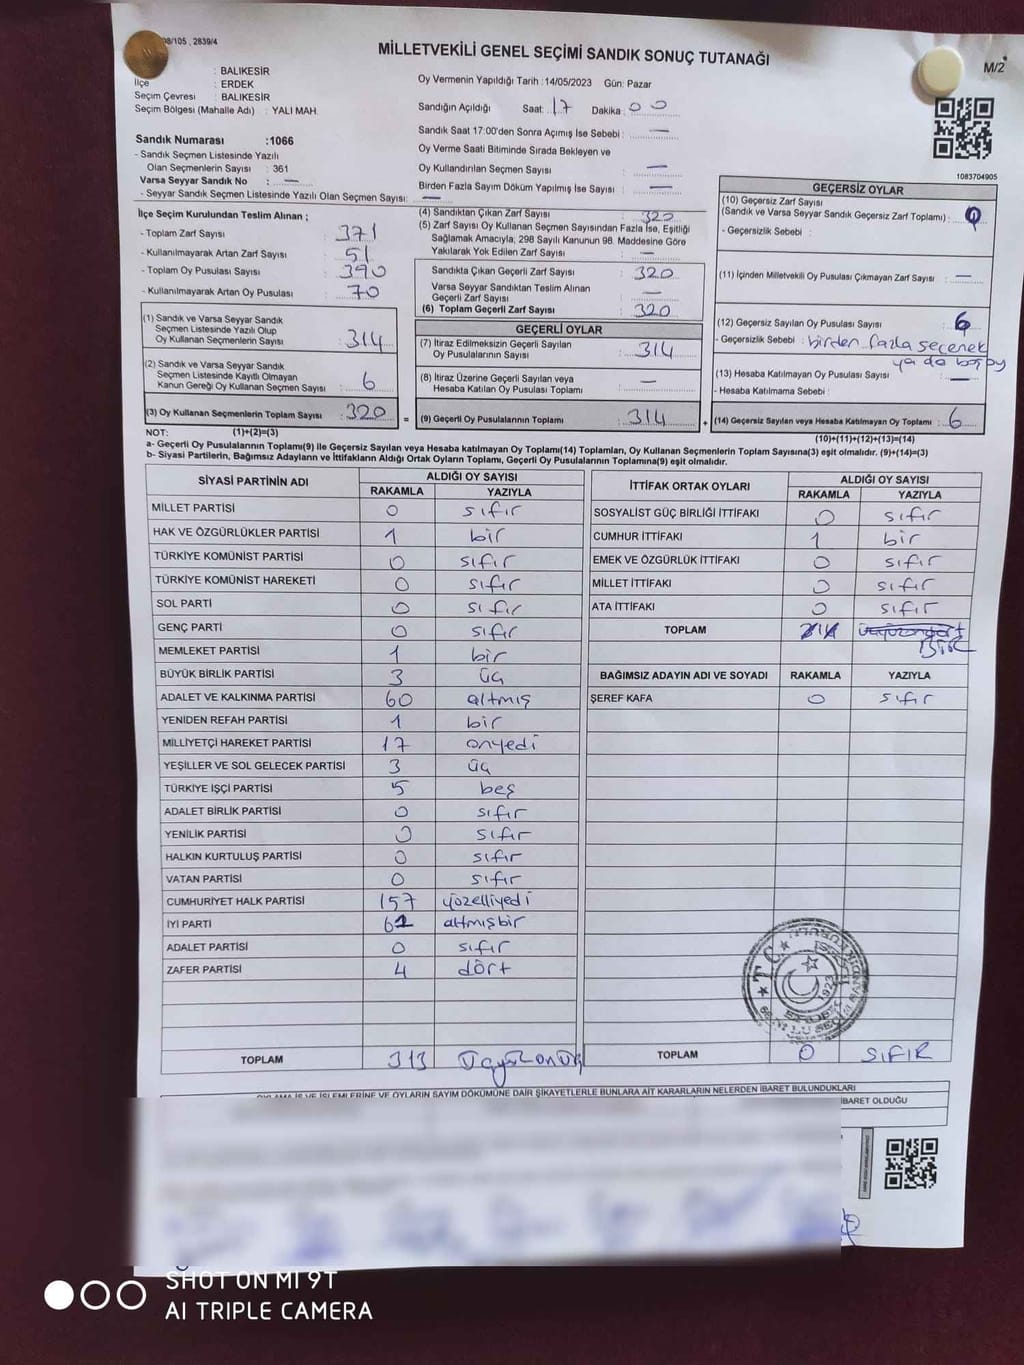 98/105 , 2839/4
MİLLETVEKİLİ GENEL SEÇİMİ SANDIK SONUÇ TUTANAĞI
M/2
: BALIKESİR
İlçe : ERDEK
Seçim Çevresi : BALIKESİR
Seçim Bölgesi (Mahalle Adı) : YALI MAH.
Oy Vermenin Yapıldığı Tarih :14/05/2023 Gün: Pazar
Sandığın Açıldığı Saat: 17 Dakika : 00
Sandık Saat 17:00'den Sonra Açımış İse Sebebi : —
Oy Verme Saati Bitiminde Sırada Bekleyen ve
Oy Kullandırılan Seçmen Sayısı : —
Birden Fazla Sayım Döküm Yapılmış İse Sayısı : —
Sandık Numarası :1066
- Sandık Seçmen Listesinde Yazılı
Olan Seçmenlerin Sayısı : 361
Varsa Seyyar Sandık No : —
- Seyyar Sandık Seçmen Listesinde Yazılı Olan Seçmen Sayısı: —
İlçe Seçim Kurulundan Teslim Alınan ;
- Toplam Zarf Sayısı : 371
- Kullanılmayarak Artan Zarf Sayısı : 51
- Toplam Oy Pusulası Sayısı : 390
- Kullanılmayarak Artan Oy Pusulası : 70
(1) Sandık ve Varsa Seyyar Sandık
Seçmen Listesinde Yazılı Olup
Oy Kullanan Seçmenlerin Sayısı : 314
(2) Sandık ve Varsa Seyyar Sandık
Seçmen Listesinde Kayıtlı Olmayan
Kanun Gereği Oy Kullanan Seçmen Sayısı : 6
(3) Oy Kullanan Seçmenlerin Toplam Sayısı : 320 =
(4) Sandıktan Çıkan Zarf Sayısı : 320
(5) Zarf Sayısı Oy Kullanan Seçmen Sayısından Fazla İse, Eşitliği
Sağlamak Amacıyla, 298 Sayılı Kanunun 98. Maddesine Göre
Yakılarak Yok Edilen Zarf Sayısı : —
Sandıkta Çıkan Geçerli Zarf Sayısı : 320
Varsa Seyyar Sandıktan Teslim Alınan
Geçerli Zarf Sayısı : —
(6) Toplam Geçerli Zarf Sayısı : 320
GEÇERLİ OYLAR
(7) İtiraz Edilmeksizin Geçerli Sayılan
Oy Pusulalarının Sayısı : 314
(8) İtiraz Üzerine Geçerli Sayılan veya
Hesaba Katılan Oy Pusulası Toplamı : —
(9) Geçerli Oy Pusulalarının Toplamı : 314 +
1083704905
GEÇERSİZ OYLAR
(10) Geçersiz Zarf Sayısı
(Sandık ve Varsa Seyyar Sandık Geçersiz Zarf Toplamı) : 0
- Geçersizlik Sebebi :
(11) İçinden Milletvekili Oy Pusulası Çıkmayan Zarf Sayısı : —
(12) Geçersiz Sayılan Oy Pusulası Sayısı : 6
- Geçersizlik Sebebi : birden fazla seçenek
ya da boş oy
(13) Hesaba Katılmayan Oy Pusulası Sayısı : —
- Hesaba Katılmama Sebebi :
(14) Geçersiz Sayılan veya Hesaba Katılmayan Oy Toplamı : 6
NOT: (1)+(2)=(3) (10)+(11)+(12)+(13)=(14)
a- Geçerli Oy Pusulalarının Toplamı(9) ile Geçersiz Sayılan veya Hesaba katılmayan Oy Toplamı(14) Toplamları, Oy Kullanan Seçmenlerin Toplam Sayısına(3) eşit olmalıdır. (9)+(14)=(3)
b- Siyasi Partilerin, Bağımsız Adayların ve İttifakların Aldığı Ortak Oyların Toplamı, Geçerli Oy Pusulalarının Toplamına(9) eşit olmalıdır.
SİYASİ PARTİNİN ADI ALDIĞI OY SAYISI
RAKAMLA YAZIYLA
MİLLET PARTİSİ 0 sıfır
HAK VE ÖZGÜRLÜKLER PARTİSİ 1 bir
TÜRKİYE KOMÜNİST PARTİSİ 0 sıfır
TÜRKİYE KOMÜNİST HAREKETİ 0 sıfır
SOL PARTİ 0 sıfır
GENÇ PARTİ 0 sıfır
MEMLEKET PARTİSİ 1 bir
BÜYÜK BİRLİK PARTİSİ 3 üç
ADALET VE KALKINMA PARTİSİ 60 altmış
YENİDEN REFAH PARTİSİ 1 bir
MİLLİYETÇİ HAREKET PARTİSİ 17 onyedi
YEŞİLLER VE SOL GELECEK PARTİSİ 3 üç
TÜRKİYE İŞÇİ PARTİSİ 5 beş
ADALET BİRLİK PARTİSİ 0 sıfır
YENİLİK PARTİSİ 0 sıfır
HALKIN KURTULUŞ PARTİSİ 0 sıfır
VATAN PARTİSİ 0 sıfır
CUMHURİYET HALK PARTİSİ 157 yüzelliyedi
İYİ PARTİ 61 altmışbir
ADALET PARTİSİ 0 sıfır
ZAFER PARTİSİ 4 dört
TOPLAM 313 Üçyüzonüç
İTTİFAK ORTAK OYLARI ALDIĞI OY SAYISI
RAKAMLA YAZIYLA
SOSYALİST GÜÇ BİRLİĞİ İTTİFAKI 0 sıfır
CUMHUR İTTİFAKI 1 bir
EMEK VE ÖZGÜRLÜK İTTİFAKI 0 sıfır
MİLLET İTTİFAKI 0 sıfır
ATA İTTİFAKI 0 sıfır
TOPLAM
BİR
BAĞIMSIZ ADAYIN ADI VE SOYADI RAKAMLA YAZIYLA
ŞEREF KAFA 0 sıfır
TOPLAM 0 SIFIR
T.C.
1923
ERDEK
OYLAMA İŞ VE İŞLEMLERİNE VE OYLARIN SAYIM DÖKÜMÜNE DAİR ŞİKAYETLERLE BUNLARA AİT KARARLARIN NELERDEN İBARET BULUNDUKLARI
İBARET OLDUĞU
SHOT ON MI 9T
AI TRIPLE CAMERA